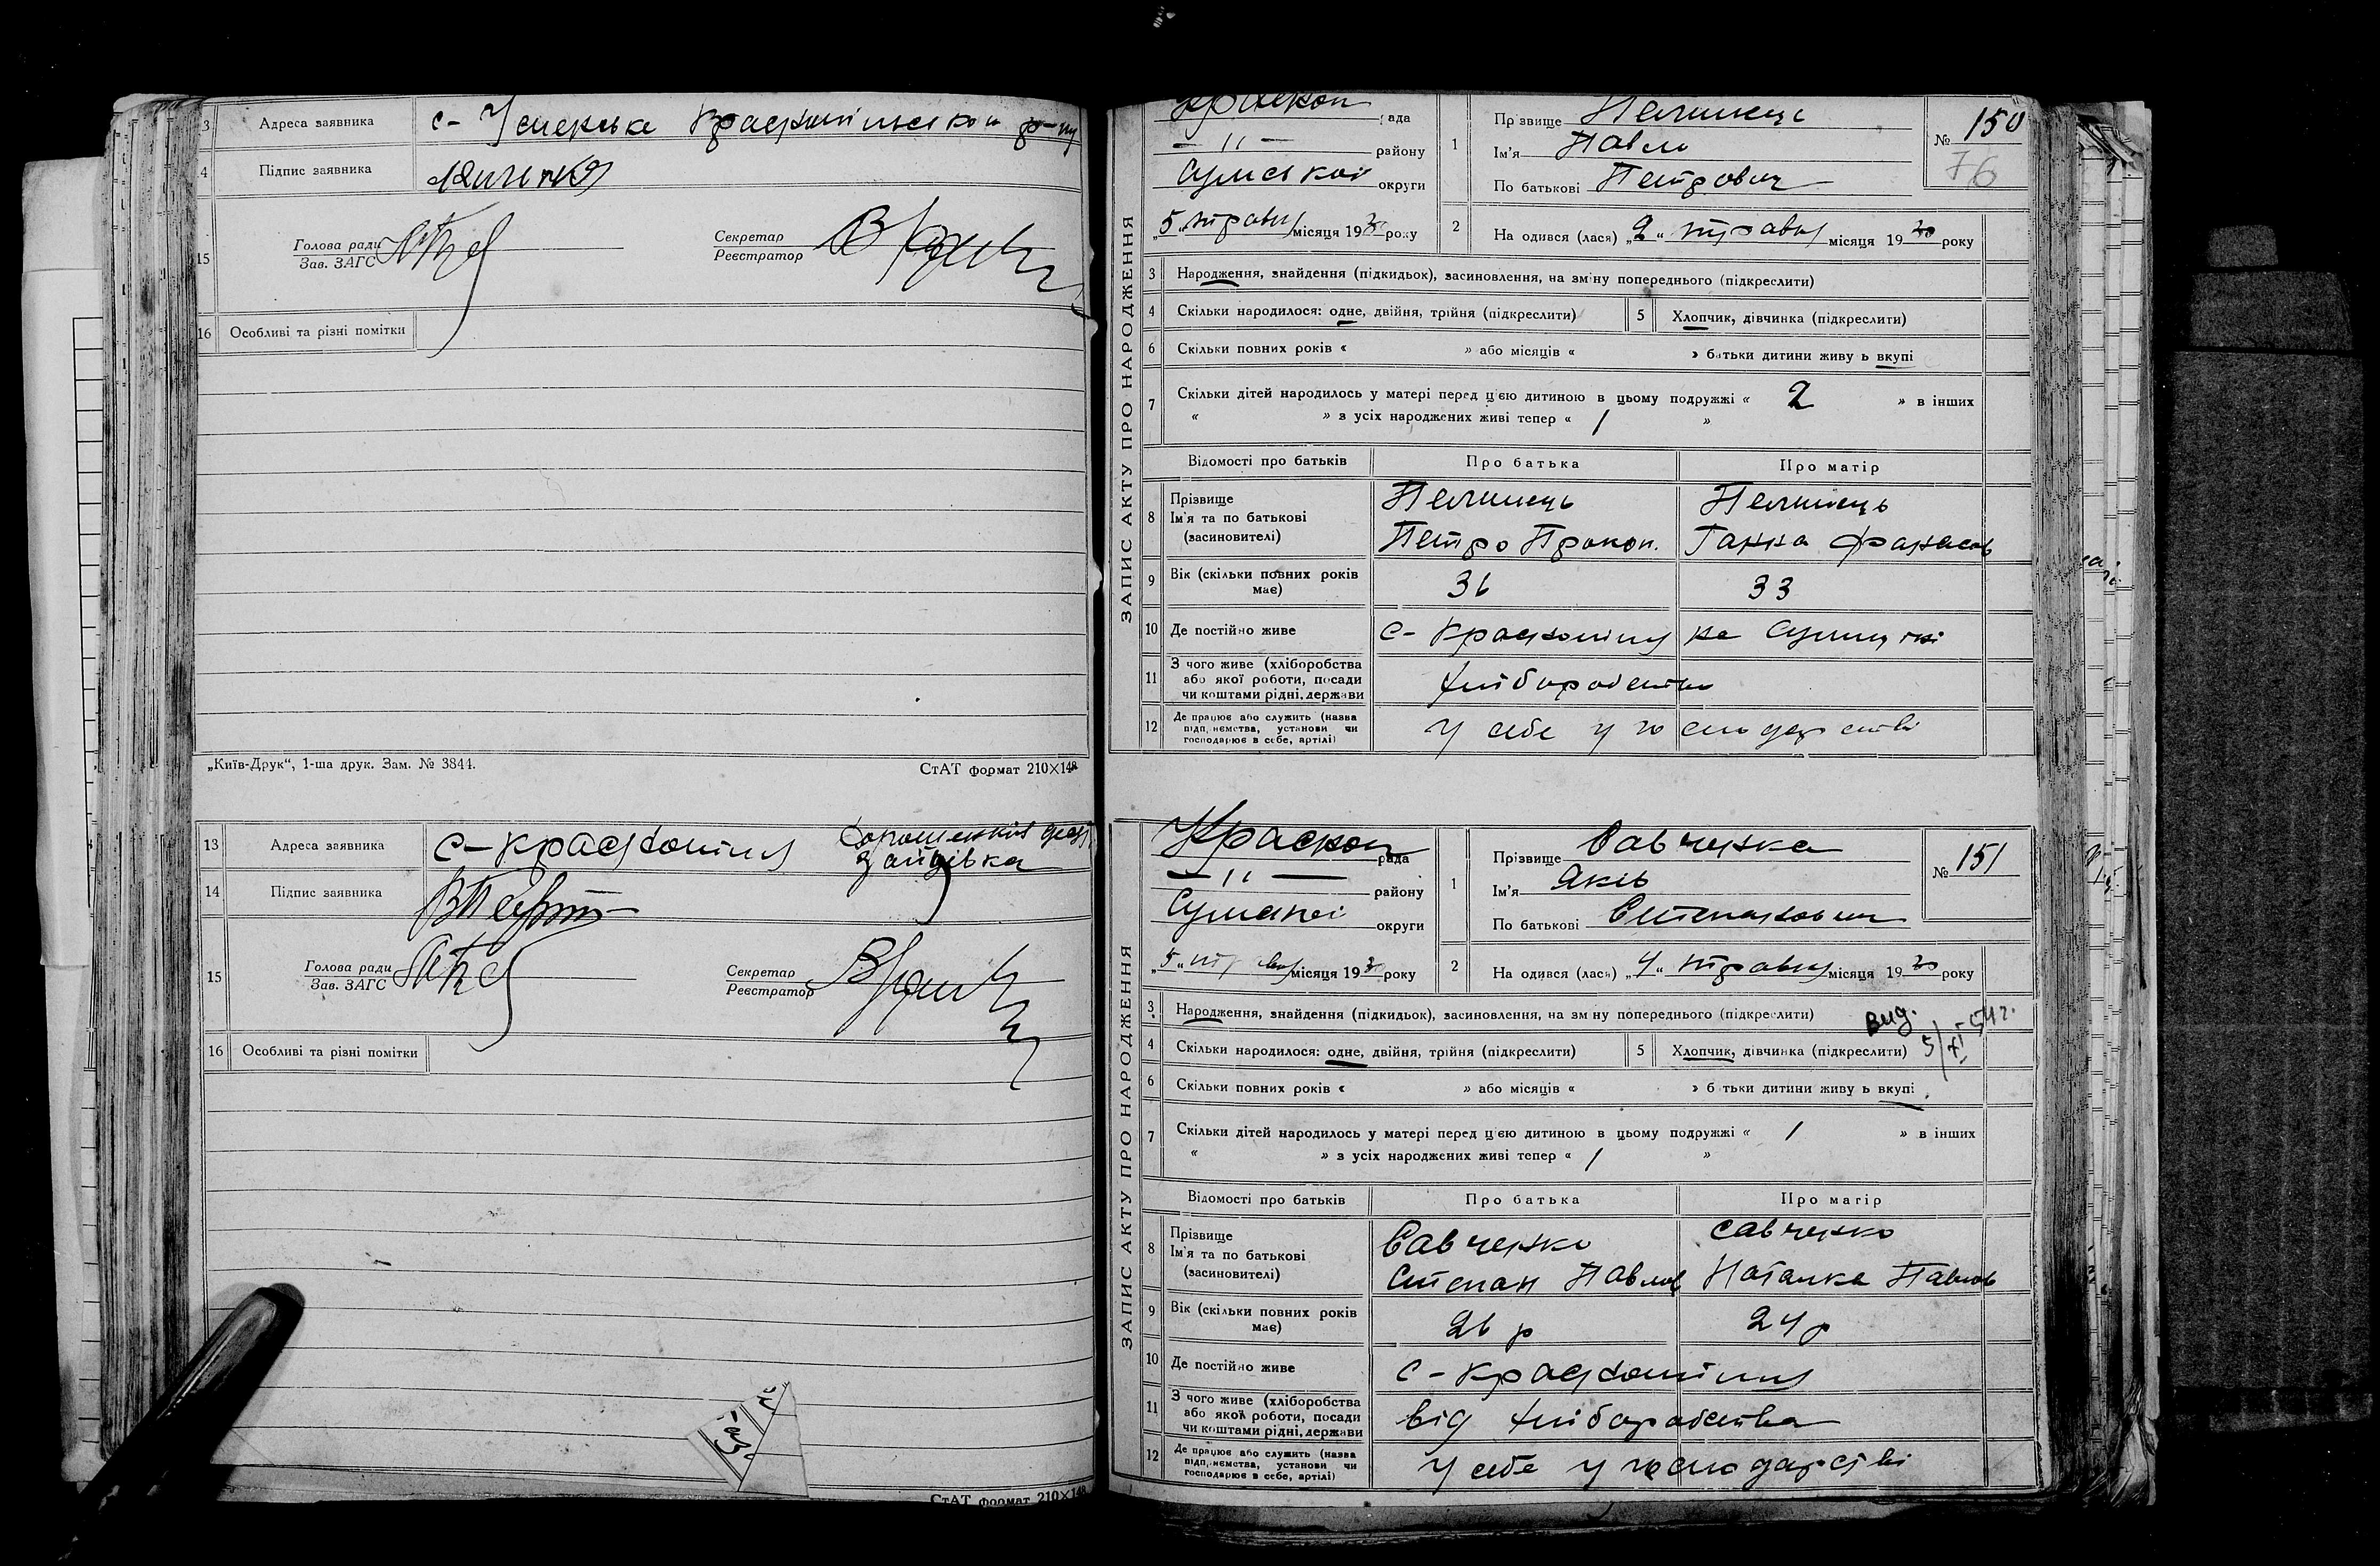 13 Адреса заявника с- Успенське Краснопільськ р-ну
14 Підпис заявника
15 Голова ради
Зав. ЗАГС
Секретар
Реєстратор
16 Особливі та різні помітки
„Київ-Друк“, 1-ша друк. Зам. № 3844.
СтАТ формат 210×148
13 Адреса заявника с- Краснопілля
14 Підпис заявника
15 Голова ради
Зав. ЗАГС
Секретар
Реєстратор
16 Особливі та різні помітки
СтАТ формат 210×148
ЗАПИС АКТУ ПРО НАРОДЖЕННЯ
Краскоп рада
— " — району
Сумської округи
„5„ травня місяця 1930 року
1 Прізвище
Ім'я Павло
По батькові Петрович
№ 150
76
2 На одився (лася) „2“ травня місяця 1930 року
3 Народження, знайдення (підкидьок), засиновлення, на зміну попереднього (підкреслити)
4 Скільки народилося: одне, двійня, трійня (підкреслити)
5 Хлопчик, дівчинка (підкреслити)
6 Скільки повних років « » або місяців « » батьки дитини живу ь вкупі
7 Скільки дітей народилось у матері перед цією дитиною в цьому подружжі « 2 » в інших
« » з усіх народжених живі тепер « 1 »
Відомості про батьків Про батька Про матір
8 Прізвище
Ім'я та по батькові
(засновителі)
Петро Прокоп. Ганна
9 Вік (скільки повних років має) 36 33
10 Де постійно живе с- Краснопілля
11 З чого живе (хліборобства або якої роботи, посади чи коштами рідні, держави хліборобства
12 Де працює або служить (назва підп, иємства, установи чи господарює в себе, артілі) у себе у господарстві
ЗАПИС АКТУ ПРО НАРОДЖЕННЯ
Краскоп рада
— " — району
Сумскої округи
„5„ травня місяця 1930 року
1 Прізвище Савченко
Ім'я Яків
По батькові Степанович
№ 151
2 На одився (лася) „4“ травня місяця 1930 року
3 Народження, знайдення (підкидьок), засиновлення, на зм ну попереднього (підкреслити)
вид. 5/XI 54 г.
4 Скільки народилося: одне, двійня, трійня (підкреслити)
5 Хлопчик, дівчинка (підкреслити)
6 Скільки повних років « » або місяців « » б тьки дитини живу ь вкупі
7 Скільки дітей народилось у матері перед цією дитиною в цьому подружжі « 1 » в інших
« » з усіх народжених живі тепер « 1 »
Відомості про батьків Про батька Про матір
8 Прізвище
Ім'я та по батькові
(засиновителі)
Савченко Савченко
Степан Павлов Наталка Павлов
9 Вік (скільки повних років має) 26 р 24 р
10 Де постійно живе с- Краснопілля
11 З чого живе (хліборобства або якої роботи, посади чи коштами рідні, держави від хліборобства
12 Де працює або служить (назва підп, иємства, установи чи господарює в себе, артілі) у себе у господарстві